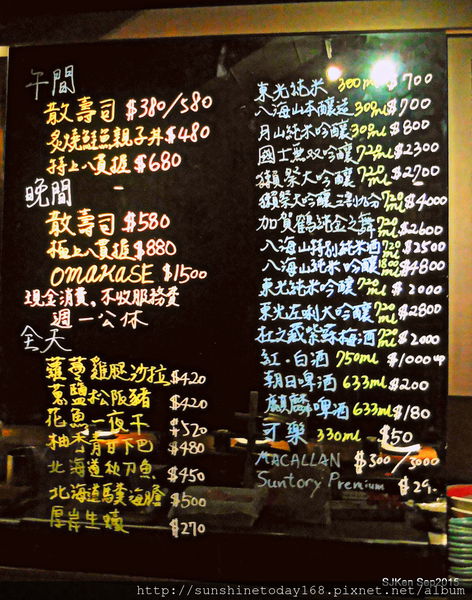 午間
散壽司 $380/580
炙燒鮭魚親子丼 $480
特上八貫握 $680
晚間
散壽司 $580
極上八貫握 $880
OMAKASE $1500
現金消費。不收服務費
週一公休
全天
蘿蔓雞腿沙拉 $420
蔥鹽松阪豬 $420
花魚一夜干 $520
柚香青甘下巴 $480
北海道秋刀魚 $450
北海道馬糞海膽 $500
厚岸生蠔 $270
東光純米 300ml $700
八海山本釀造 300ml $700
月山純米吟釀 300ml $800
國士無双吟釀 720ml $2300
獺祭大吟釀 720ml $2700
獺祭大吟釀三割九分 720ml $4000
加賀鶴純金之舞 720ml $2600
八海山特別純米酒 720ml $2500
八海山純米吟釀 1800ml $4800
東光純米吟釀 720ml $2000
東光左利大吟釀 720ml $2800
杜之藏紫蘇梅酒 720ml $2000
紅.白酒 750ml $1000up
朝日啤酒 633ml $200
麒麟啤酒 633ml $180
可樂 330ml $50
MACALLAN $300/3000
Suntory Premium $29.
SJKen Sep2015
http://sunshinetoday168.pixnet.net/album